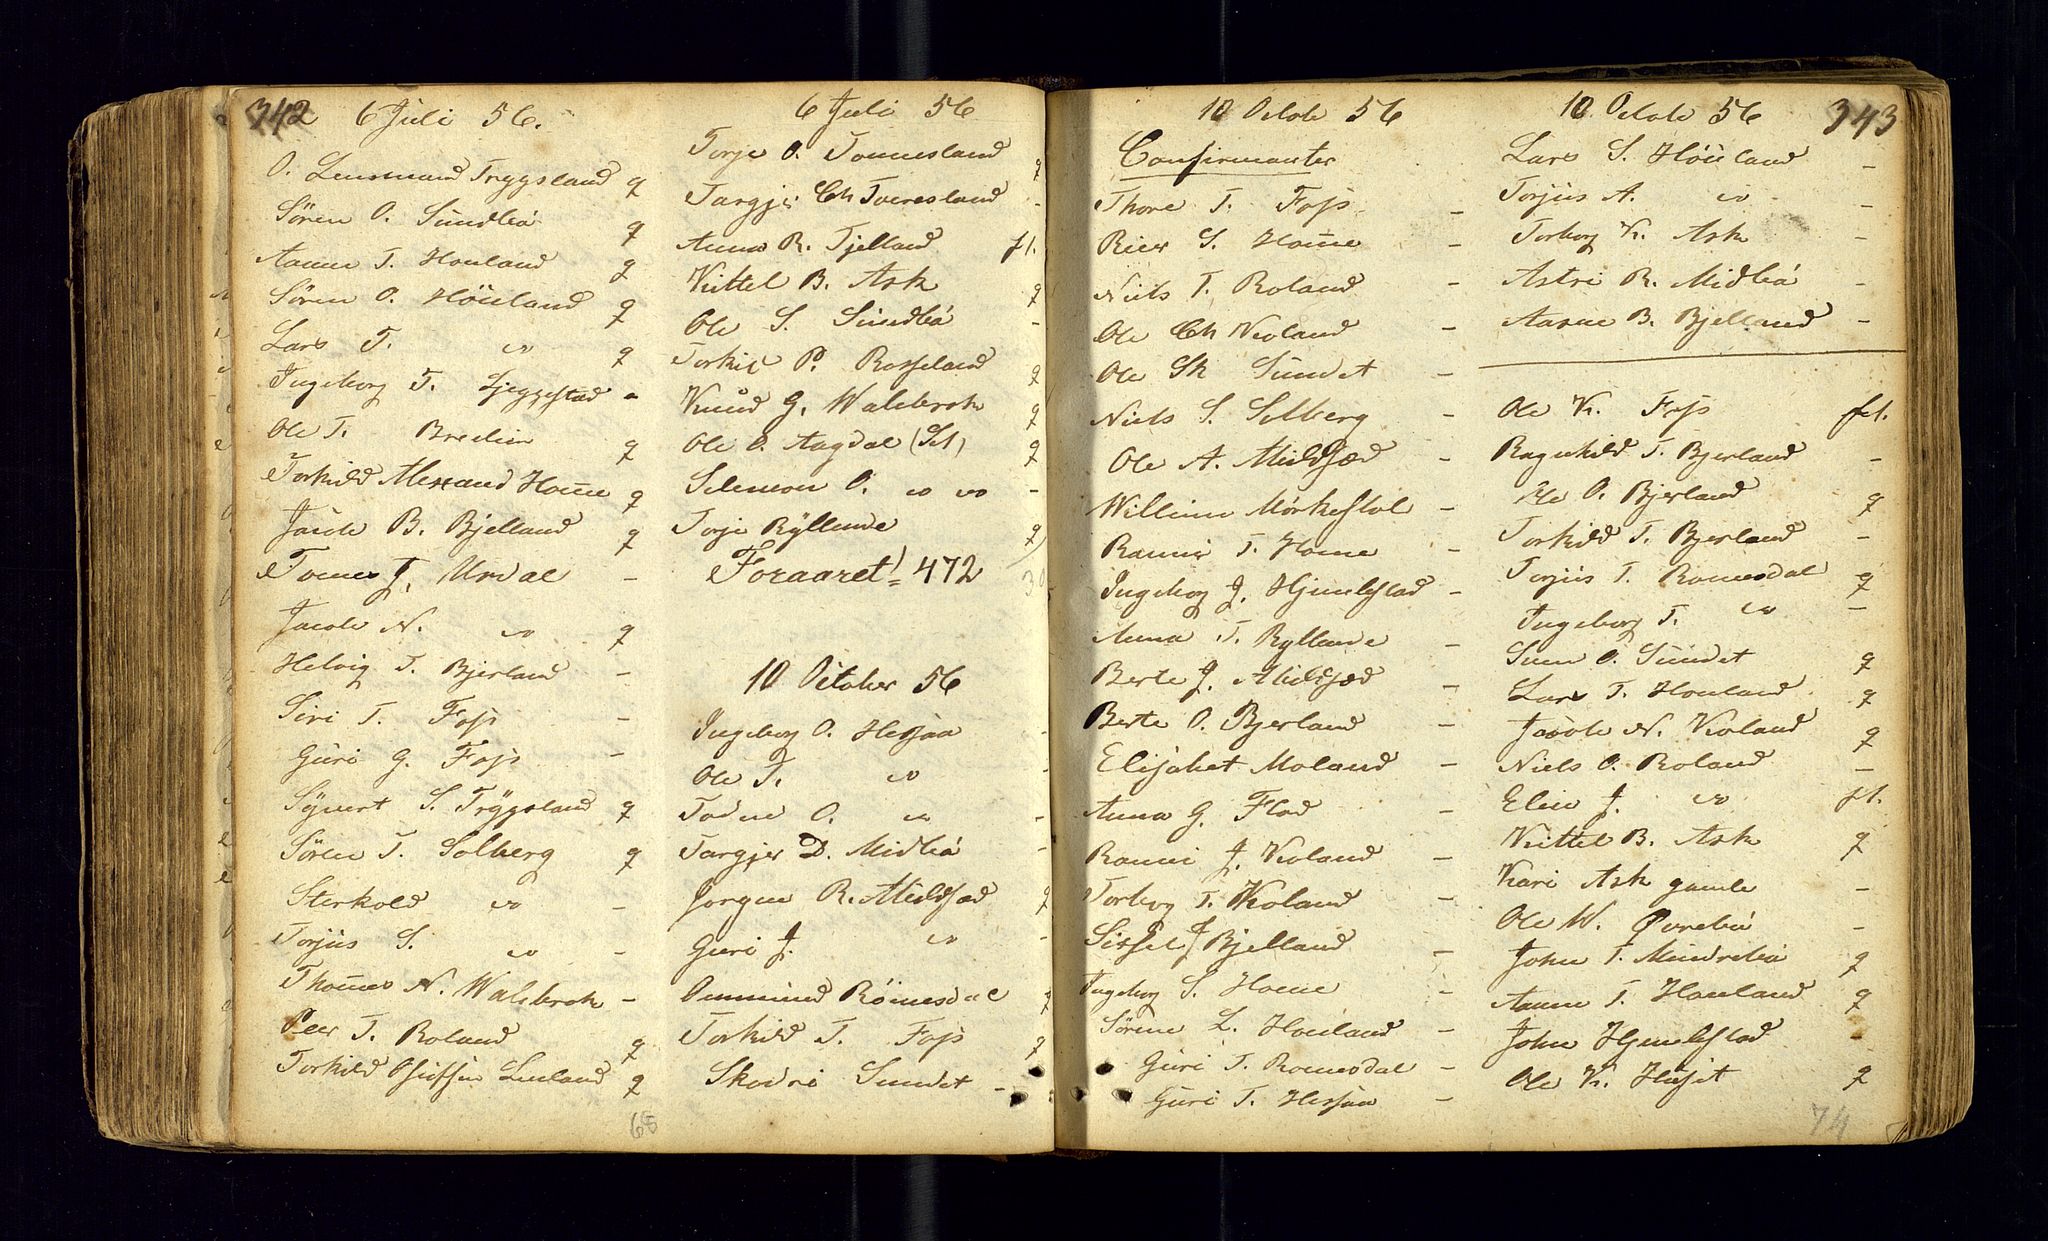 342 6 Juli 56.
O. Lensmand Trygsland g
Sören O. Sundbø g
Aanen T. Houland g
Sören O. Höuland g
Lars T. do g
Ingeborg T. -
Ole T. Bredin g
Torkild Alexand Home g
Jacob B. Bjelland g
Tomes J. Urdal -
Jacob N. do g
Helvig T. Bjerland -
Siri T. Foss -
Guri G. Foss -
Syvert S. Trygsland g
Sören T. Solberg g
Sterkold do -
Torjus S. do -
Thomes N. Walsbrok -
Peer T. Roland g
Torkild g
65
6 Juli 56
Torje O. Tonnesland g
Targjer Ch Tveresland -
Anna R. Tjelland ft.
Kittel B. Ask g
Ole S. Sundbø -
Torkil P. Rosseland g
Knud G. Walsbrok g
Ole O. Aagdal g
O. do do -
Torje Ryllende g
Foraaret 472
10 October 56
Ingeborg O. Hessaa -
Ole T. do -
O. do -
Targjer D. Midbø -
Jörgen R. Mildsæd g
Guri J. do -
Ommund Römesdal g
Torkild T. Foss g
Skodri Sundet -
10 Octob 56
Confirmanter
Thore T. Foss -
Reier S. Home -
Niels T. Roland -
Ole Ch Veoland -
Ole Sk Sundet -
Niels S. Solberg -
Ole A. Mildsæd -
William Mörkestol -
Ranni T. Home -
Ingeborg J. Hjemlestad -
Anna T. Ryllende -
Berte J. Mildsæd -
Berte O. Bjerland -
Elisabet Moland -
Anna G. Flad -
Ranni J. Veoland -
Torborg T. Veoland -
Sissel J Bjelland -
Ingeborg S. Home -
Sörine L. Houland -
Guri T. Romesdal -
Guri T. Hessaa -
10 Octob 56 343
Lars S. Höuland -
Torjus A. do -
Torborg K. Ask -
Astri R. Midbø -
Aasne B. Bjelland -
Ole K. Foss ft.
Ragnhild T. Bjerland -
Ole O. Bjerland g
Torkild T. Bjerland -
Torjus T. Romesdal g
Ingeborg T. do -
Sven O. Sundet g
Lars T. Houland g
Jacob N. Veoland g
Niels O. Roland -
Elen J. do ft.
Kittel B. Ask g
Kari Ask gamle -
Ole W. Övrebø -
John T. Mindrebø g
Aanen T. Houland g
John Hjemlestad -
Ole K. Huset g
74